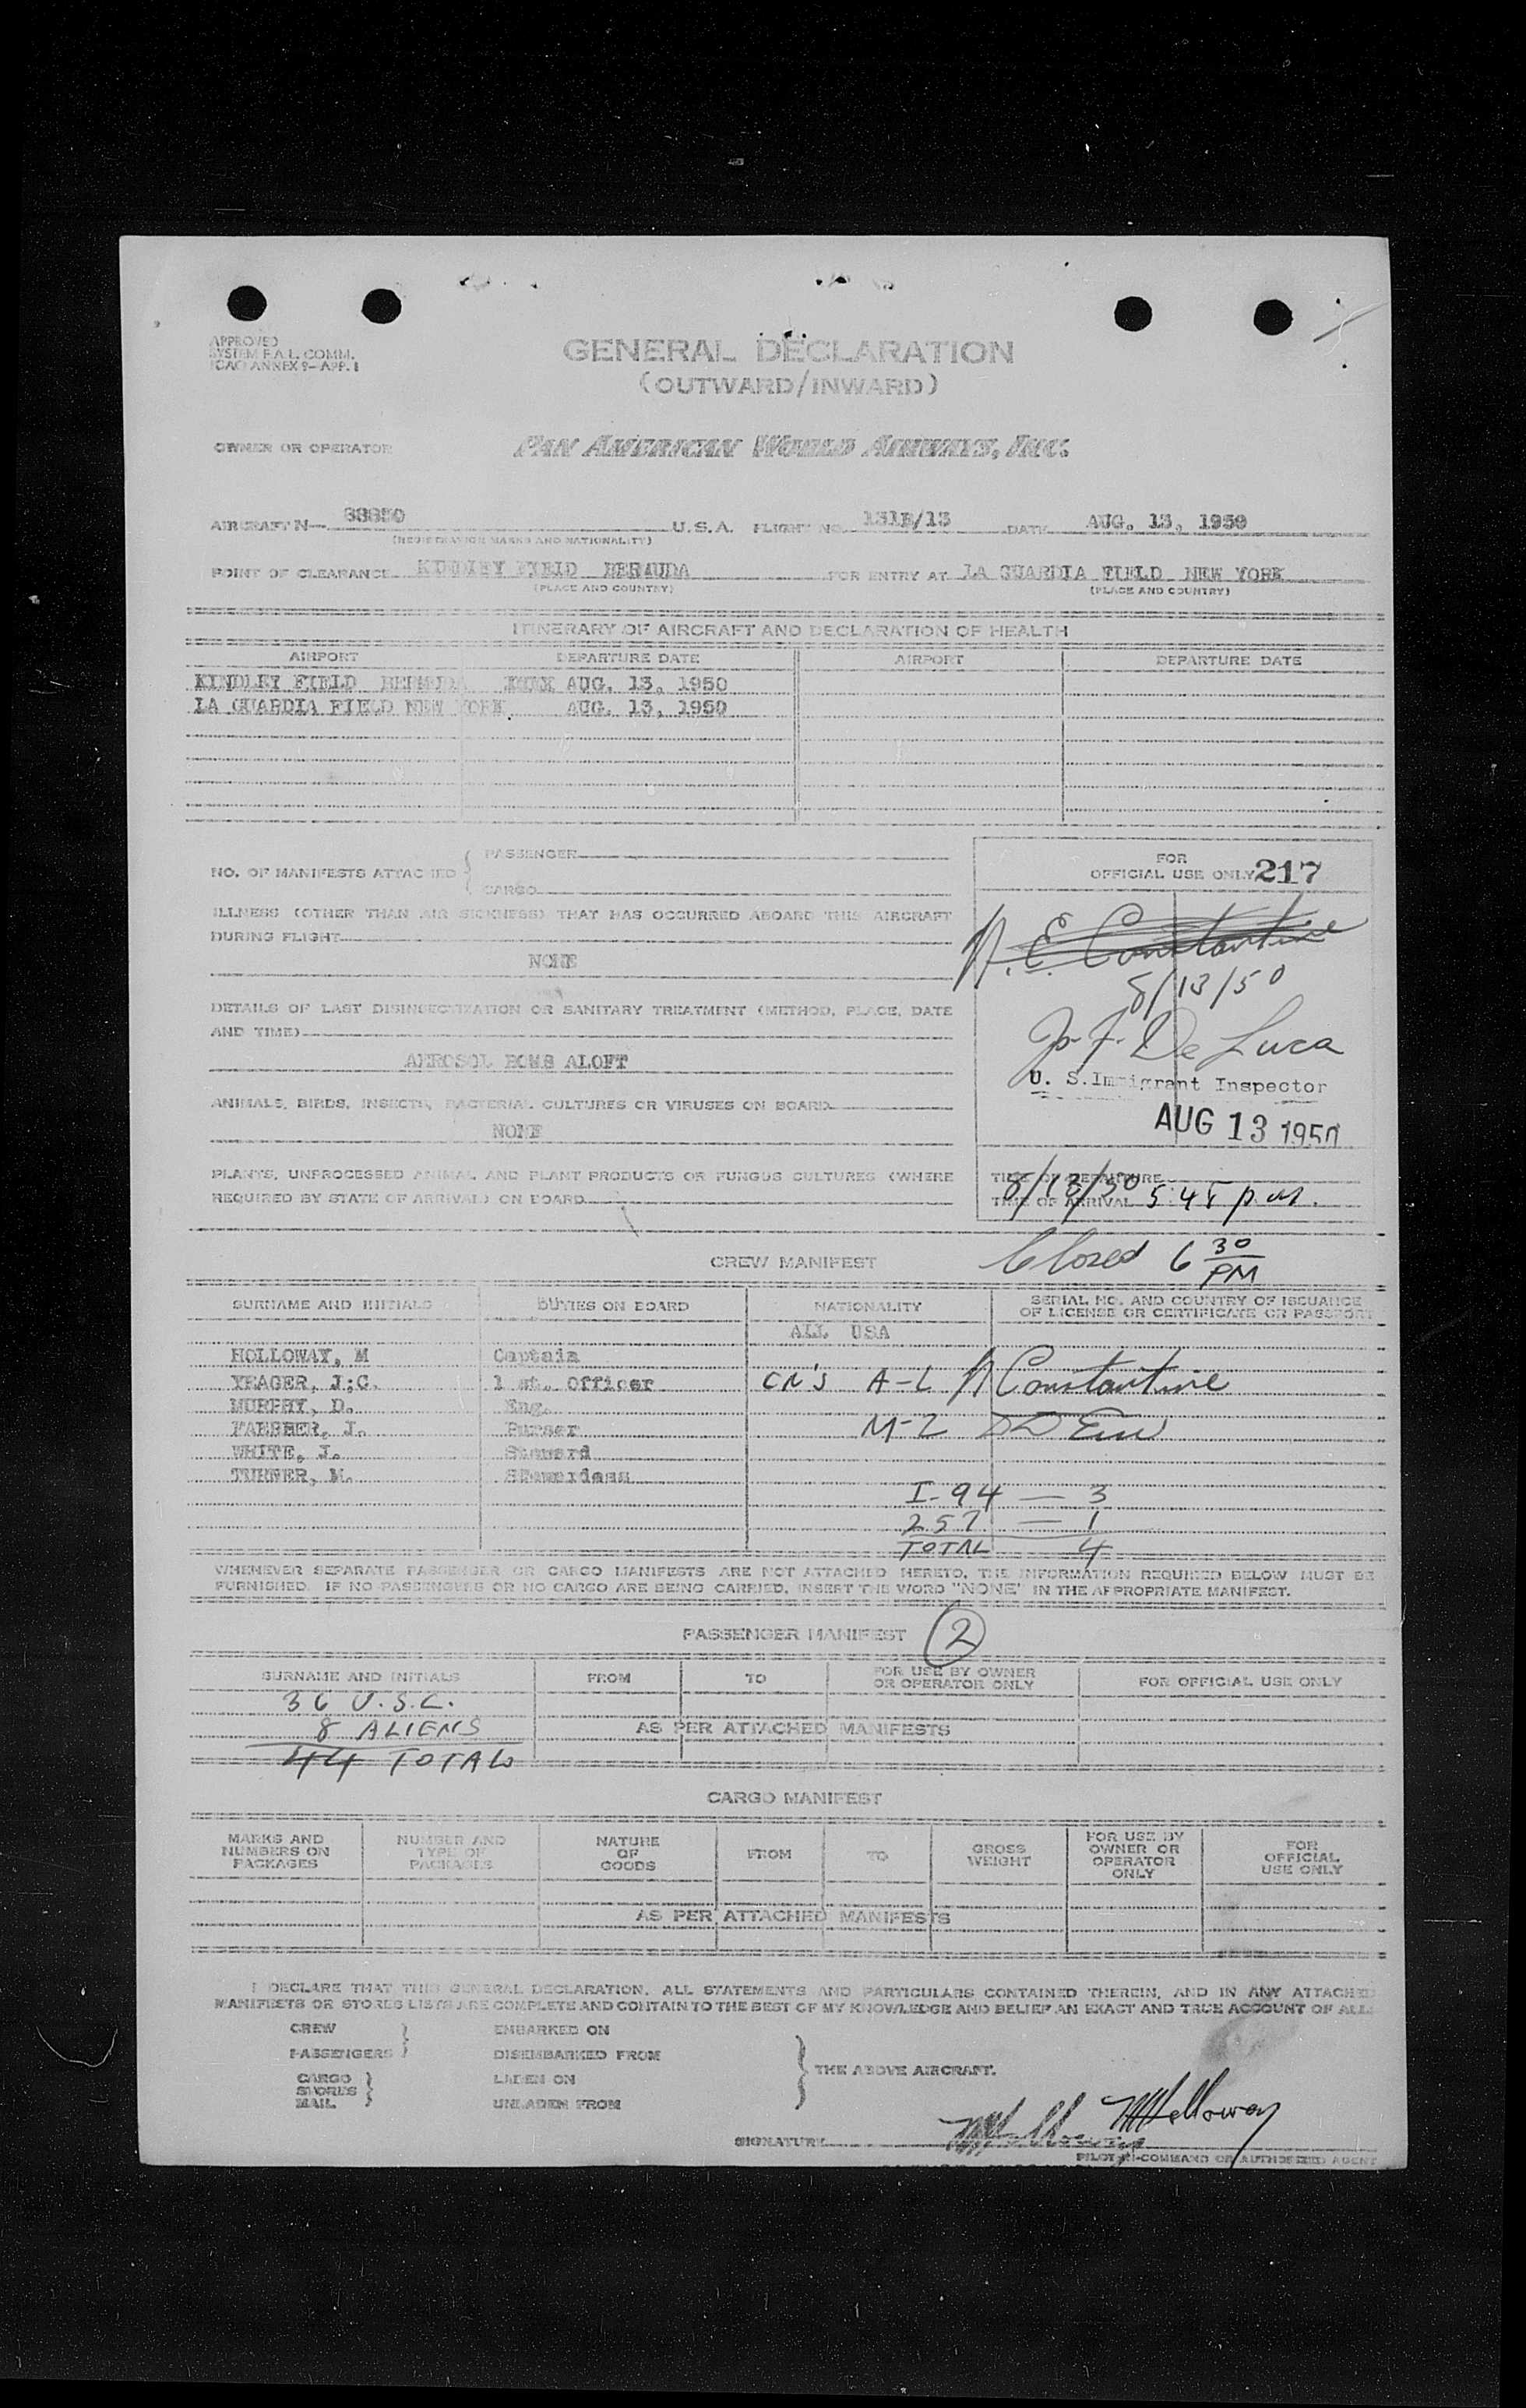 APPROVED
SYSTEM F.A.L. COMM.
ICAO ANNEX 9-APP. 1
GENERAL DECLARATION
(OUTWARD/INWARD)
OWNER OR OPERATOR PAN AMERICAN WORLD AIRWAYS, INC.
AIRCRAFT N- U.S.A. FLIGHT NO. 131B/13 DATE AUG. 13, 1950
(REGISTRATION MARKS AND NATIONALITY)
POINT OF CLEARANCE KINDLEY FIELD BERMUDA FOR ENTRY AT LA GUARDIA FIELD NEW YORK
(PLACE AND COUNTRY) (PLACE AND COUNTRY)
ITINERARY OF AIRCRAFT AND DECLARATION OF HEALTH
AIRPORT DEPARTURE DATE AIRPORT DEPARTURE DATE
KINDLEY FIELD BERMUDA AUG. 13, 1950
LA GUARDIA FIELD NEW YORK. AUG. 13, 1950
NO. OF MANIFESTS ATTACHED { PASSENGER
CARGO
FOR
OFFICIAL USE ONLY 217
ILLNESS (OTHER THAN AIR SICKNESS) THAT HAS OCCURRED ABOARD THIS AIRCRAFT
DURING FLIGHT
NONE
N. E. Constantine
8/13/50
DETAILS OF LAST DISINSECTIZATION OR SANITARY TREATMENT (METHOD, PLACE, DATE
AND TIME)
AEROSOL BOMB ALOFT
Jo. F. De Luca
U. S. Immigrant Inspector
ANIMALS, BIRDS, INSECTS, BACTERIAL CULTURES OR VIRUSES ON BOARD
NONE
AUG 13 1950
PLANTS, UNPROCESSED ANIMAL AND PLANT PRODUCTS OR FUNGUS CULTURES (WHERE
REQUIRED BY STATE OF ARRIVAL) ON BOARD
TIME OF DEPARTURE
TIME OF ARRIVAL
8/13/50 5:45 p.m.
CREW MANIFEST Closed 6 30 PM
SURNAME AND INITIALS DUTIES ON BOARD NATIONALITY SERIAL NO. AND COUNTRY OF ISSUANCE
OF LICENSE OR CERTIFICATE OR PASSPORT
ALL USA
HOLLOWAY, M Captain
YEAGER, J.C. 1 st. Officer CN'S A-L N Constantine
MURPHY, D. Eng.
FAERBER, J. Purser M-Z
WHITE, J. Steward
TURNER, M. Stewardess
I-94 — 3
257 — 1
TOTAL 4
WHENEVER SEPARATE PASSENGER OR CARGO MANIFESTS ARE NOT ATTACHED HERETO, THE INFORMATION REQUIRED BELOW MUST BE
FURNISHED. IF NO PASSENGERS OR NO CARGO ARE BEING CARRIED, INSERT THE WORD "NONE" IN THE APPROPRIATE MANIFEST.
PASSENGER MANIFEST 2
SURNAME AND INITIALS FROM TO FOR USE BY OWNER
OR OPERATOR ONLY FOR OFFICIAL USE ONLY
36 U.S.C.
8 ALIENS AS PER ATTACHED MANIFESTS
44 TOTAL
CARGO MANIFEST
MARKS AND
NUMBERS ON
PACKAGES
NUMBER AND
TYPE OF
PACKAGES
NATURE
OF
GOODS
FROM
TO
GROSS
WEIGHT
FOR USE BY
OWNER OR
OPERATOR
ONLY
FOR
OFFICIAL
USE ONLY
AS PER ATTACHED MANIFESTS
I DECLARE THAT THIS GENERAL DECLARATION, ALL STATEMENTS AND PARTICULARS CONTAINED THEREIN, AND IN ANY ATTACHED
MANIFESTS OR STORES LISTS ARE COMPLETE AND CONTAIN TO THE BEST OF MY KNOWLEDGE AND BELIEF AN EXACT AND TRUE ACCOUNT OF ALL:
CREW EMBARKED ON
PASSENGERS DISEMBARKED FROM
CARGO LADEN ON THE ABOVE AIRCRAFT.
STORES
MAIL UNLADEN FROM
SIGNATURE MHolloway MHolloway
PILOT-IN-COMMAND OR AUTHORIZED AGENT